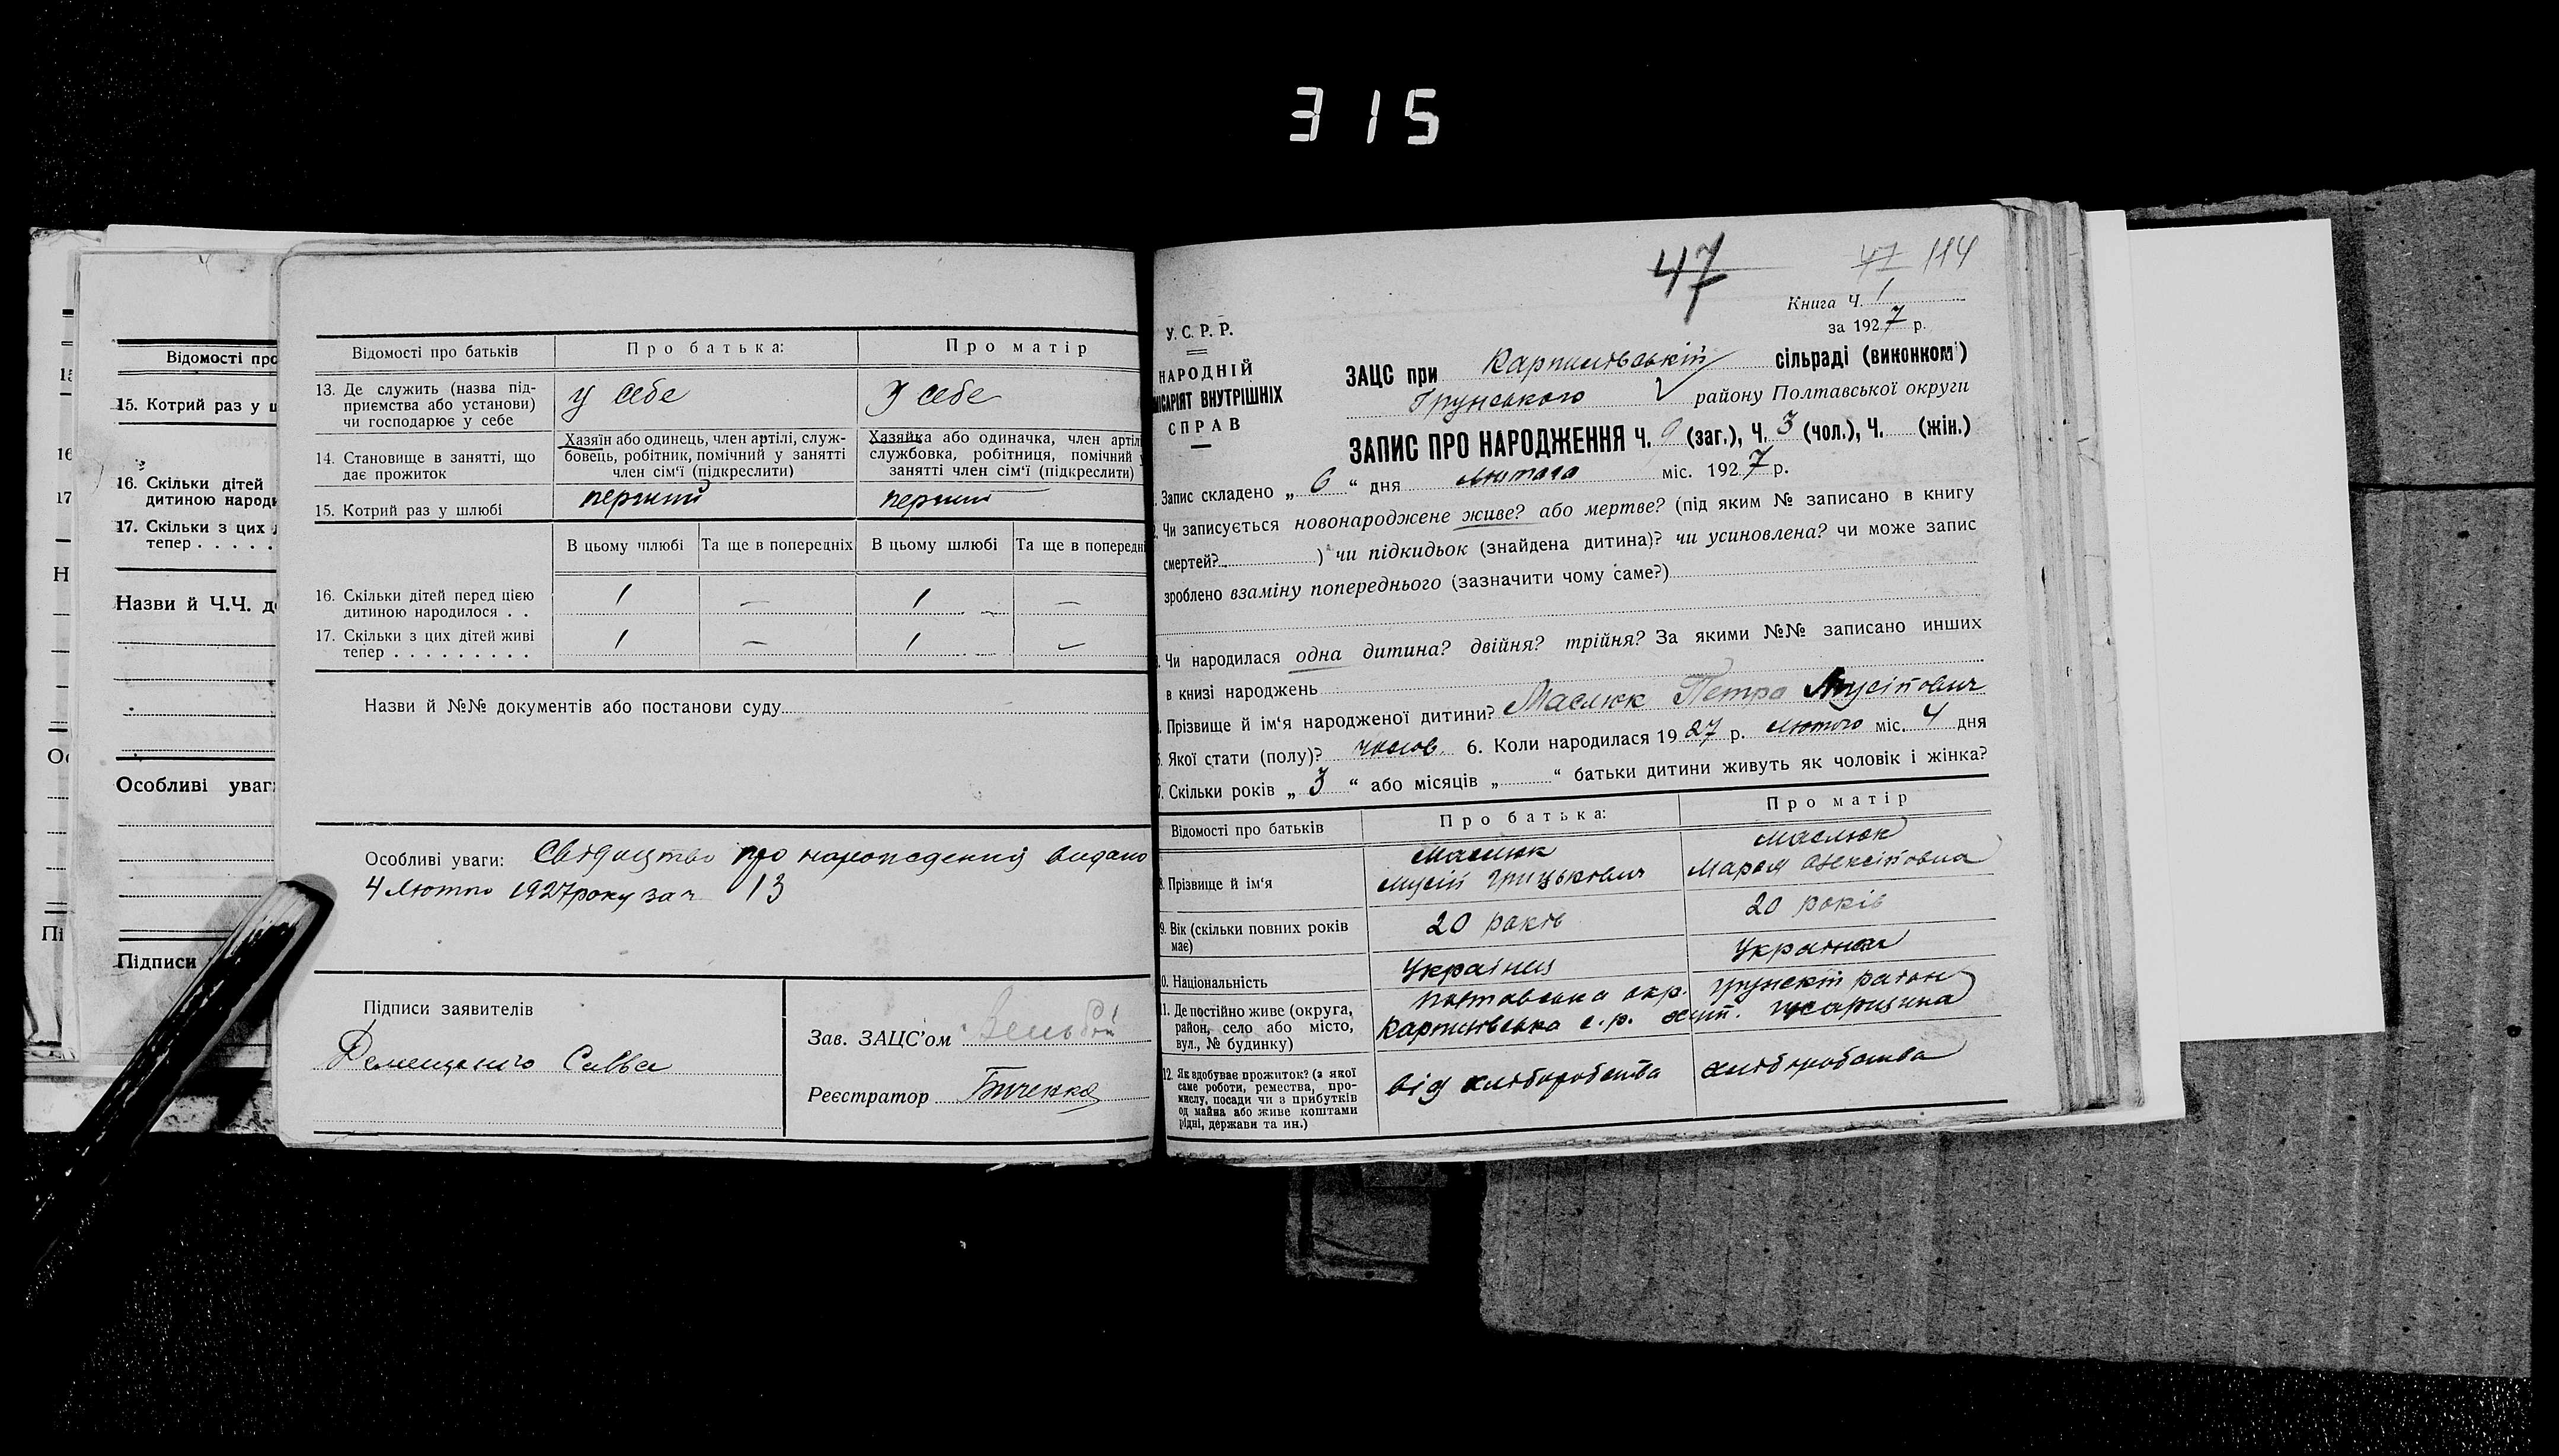 315
Відомості про
15. Котрий раз у ш
16. Скільки дітей
дитиною народи
17. Скільки з цих
тепер . . . . .
Назви й Ч.Ч. д
Особливі уваг
Підписи
Відомості про батьків
Про батька:
Про матір
13. Де служить (назва під-
приємства або установи)
чи господарює у себе
у себе
у себе
14. Становище в занятті, що
дає прожиток
Хазяїн або одинець, член артілі, служ-
бовець, робітник, помічний у занятті
член сім'ї (підкреслити)
Хазяйка або одиначка, член артілі
службовка, робітниця, помічний у
занятті член сім'ї (підкреслити)
15. Котрий раз у шлюбі
перший
перший
В цьому шлюбі
Та ще в попередніх
В цьому шлюбі
Та ще в попередні
16. Скільки дітей перед цією
дитиною народилося . .
1 — 1 —
17. Скільки з цих дітей живі
тепер . . . . . . . . .
1 — 1 —
Назви й №№ документів або постанови суду
Особливі уваги: Свідоцтво про видано
4 Лютого 1927 року за ч 13
Підписи заявителів
Савва
Зав. ЗАЦС'ом
Реєстратор Биченко
47
47 114
Книга Ч. 1
за 1927 р.
У.С.Р.Р.
НАРОДНІЙ
ІСАРІЯТ ВНУТРІШНІХ
СПРАВ
ЗАЦС при Карпилівській сільраді (виконкомі)
Грунського району Полтавської округи
ЗАПИС ПРО НАРОДЖЕННЯ Ч. 9 (заг.), Ч. 3 (чол.), Ч. (жін.)
Запис складено „ 6 “ дня лютого міс. 1927 р.
Чи записується новонароджене живе? або мертве? (під яким № записано в книгу
смертей? ) чи підкидьок (знайдена дитина)? чи усиновлена? чи може запис
зроблено взаміну попереднього (зазначити чому саме?)
Чи народилася одна дитина? двійня? трійня? За якими №№ записано инших
в книзі народжень
Прізвище й ім'я народженої дитини? Маслюк Петро Мусійович
Якої стати (полу)? чолов. 6. Коли народилася 1927 р. лютого міс. 4 дня
Скільки років „ 3 “ або місяців „ “ батьки дитини живуть як чоловік і жінка?
Відомості про батьків
Про батька:
Про матір
8. Прізвище й ім'я
Маслюк
Мусій Грицькович
Маслюк
Олексіївна
9. Вік (скільки повних років
має)
20 років
20 років
10. Національність
Українец
Українка
11. Де постійно живе (округа,
район, село або місто,
вул., № будинку)
Полтавська окр. Грунский район
Карпилівська с.р. хут.
12. Як вдобуває прожиток? (з якої
саме роботи, ремества, про-
мислу, посади чи з прибутків
од майна або живе коштами
рідні, держави та ин.)
від хліборобства
хліборобства